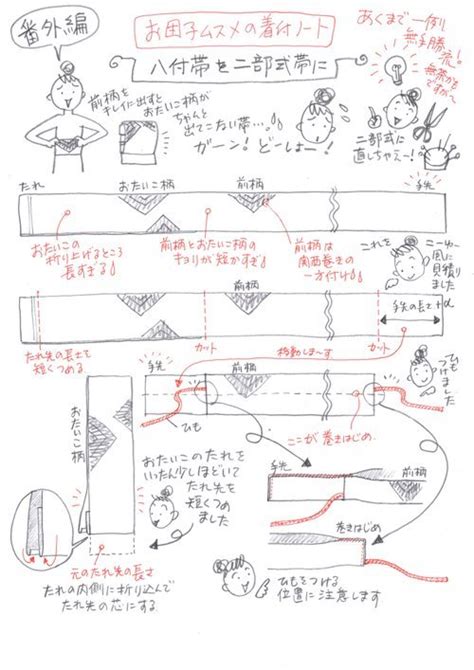 番外編
お団子ムスメの着付ノート
八付帯を二部式帯に
あくまで一例
無手勝
流!
無茶かも
ですが〜
前柄を
キレイに出すと
おたいこ柄が
ちゃんと
出てこない帯…。
ガーン!どーしょー!
二部式に
直しちゃえー!
たれ
おたいこ柄
前柄
手先
おたいこの
折り上げるところ
長すぎる!
前柄とおたいこ柄の
キョリが短かすぎ!
前柄は
関西巻きの
一方付け!
これを
こーゆー
風に
見積り
ました
前柄
手先の長さ+α
たれ先の長さを
短くつめる
カット
移動しま〜す
カット
手先
前柄
ひも
つけました
ひも
ここが巻きはじめ
おたいこ柄
おたいこのたれを
いったん少しほどいて
たれ先を
短くつめ
ました
手先
前柄
巻きはじめ
元のたれ先の長さ
たれの内側に折り込んで
たれ先の芯にする。
ひもをつける
位置に注意します